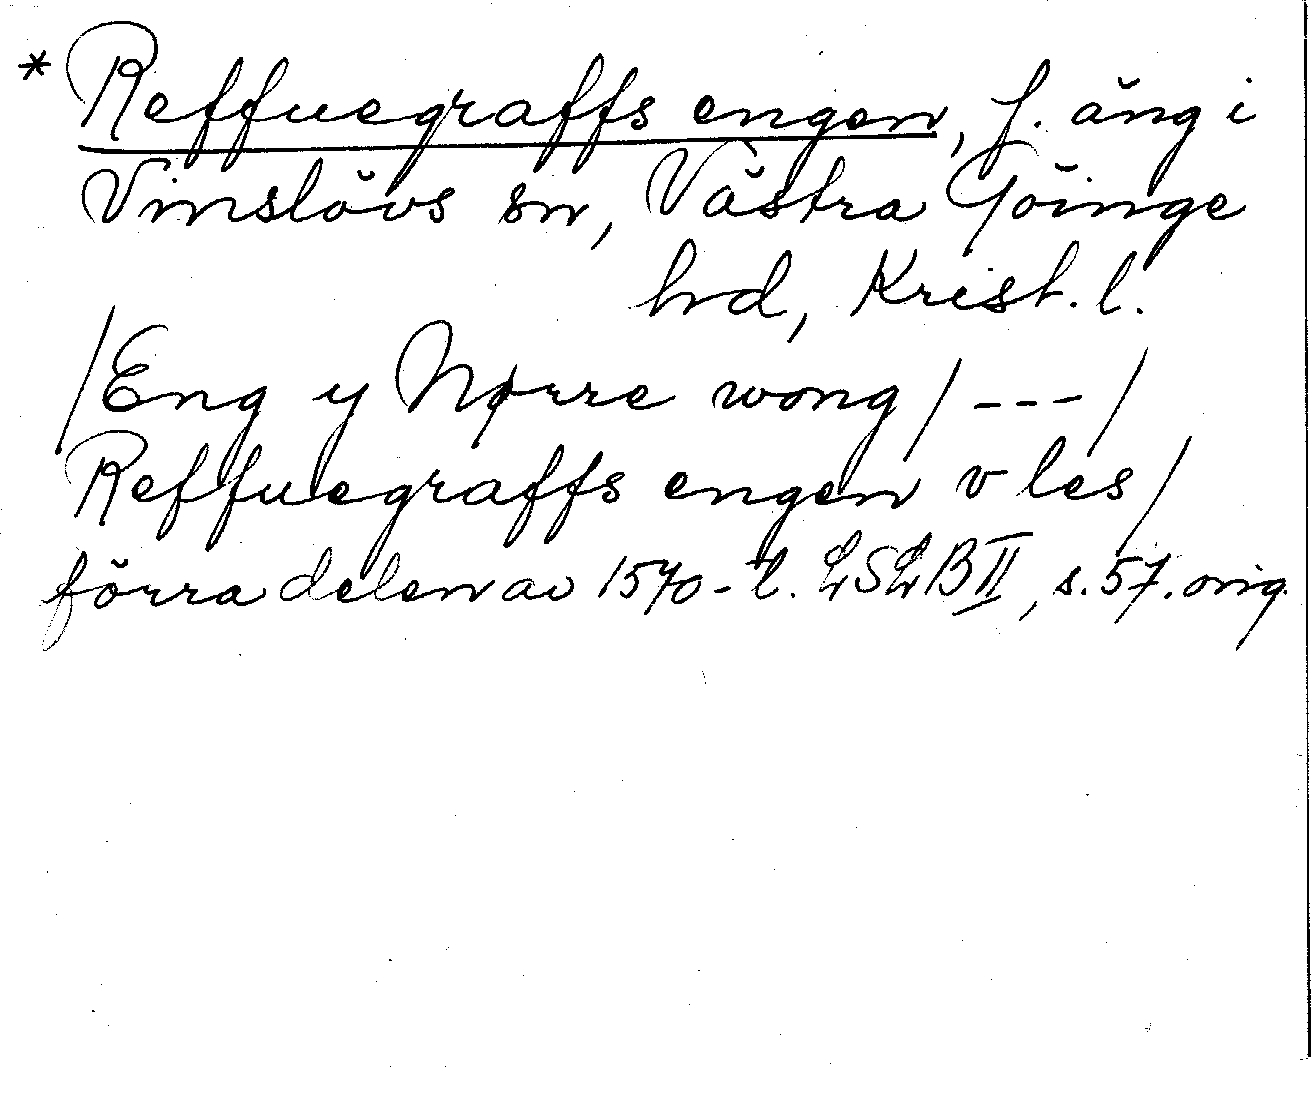 * Reffuegraffs engen, f. äng i
Vinslövs sn, Västra Göinge
hd, Krist. l.
/Eng y Nørre wong/ --- /
Reffuegraffs engen v les/
förra delen av 1570-t. LSLB II, s. 57. orig.